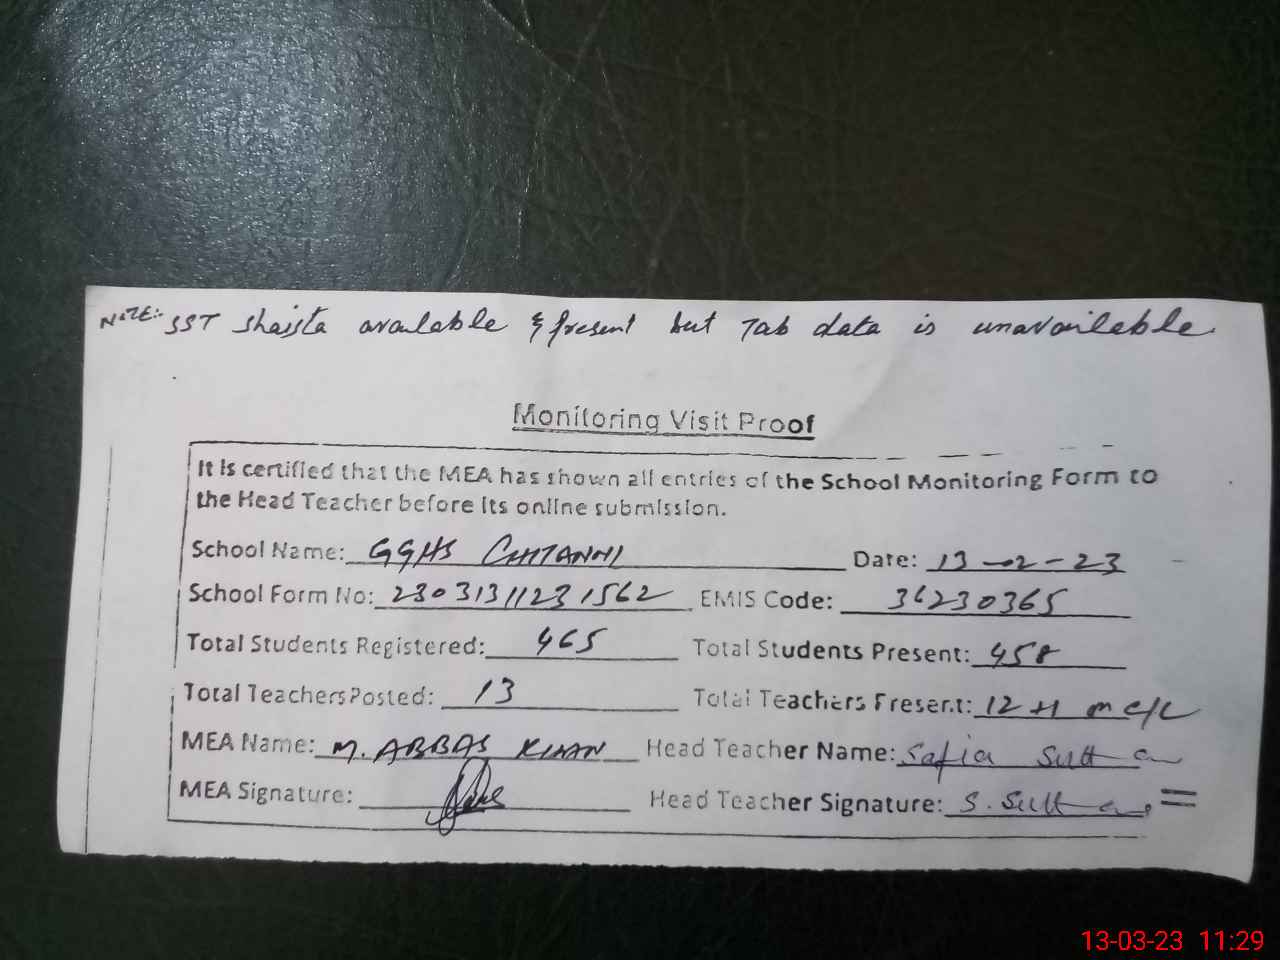 NOTE:- SST Shaista available & present but Tab data is unavailable
Monitoring Visit Proof
It is certified that the MEA has shown all entries of the School Monitoring Form to
the Head Teacher before its online submission.
School Name: GGHS CHTANNI Date: 13-02-23
School Form No: 23031311231562 EMIS Code: 36230365
Total Students Registered: 465 Total Students Present: 458
Total Teachers Posted: 13 Total Teachers Present: 12 +1
MEA Name: M. ABBAS KHAN Head Teacher Name: Safia Sultana
MEA Signature: Head Teacher Signature: S. Sultana
13-03-23 11:29